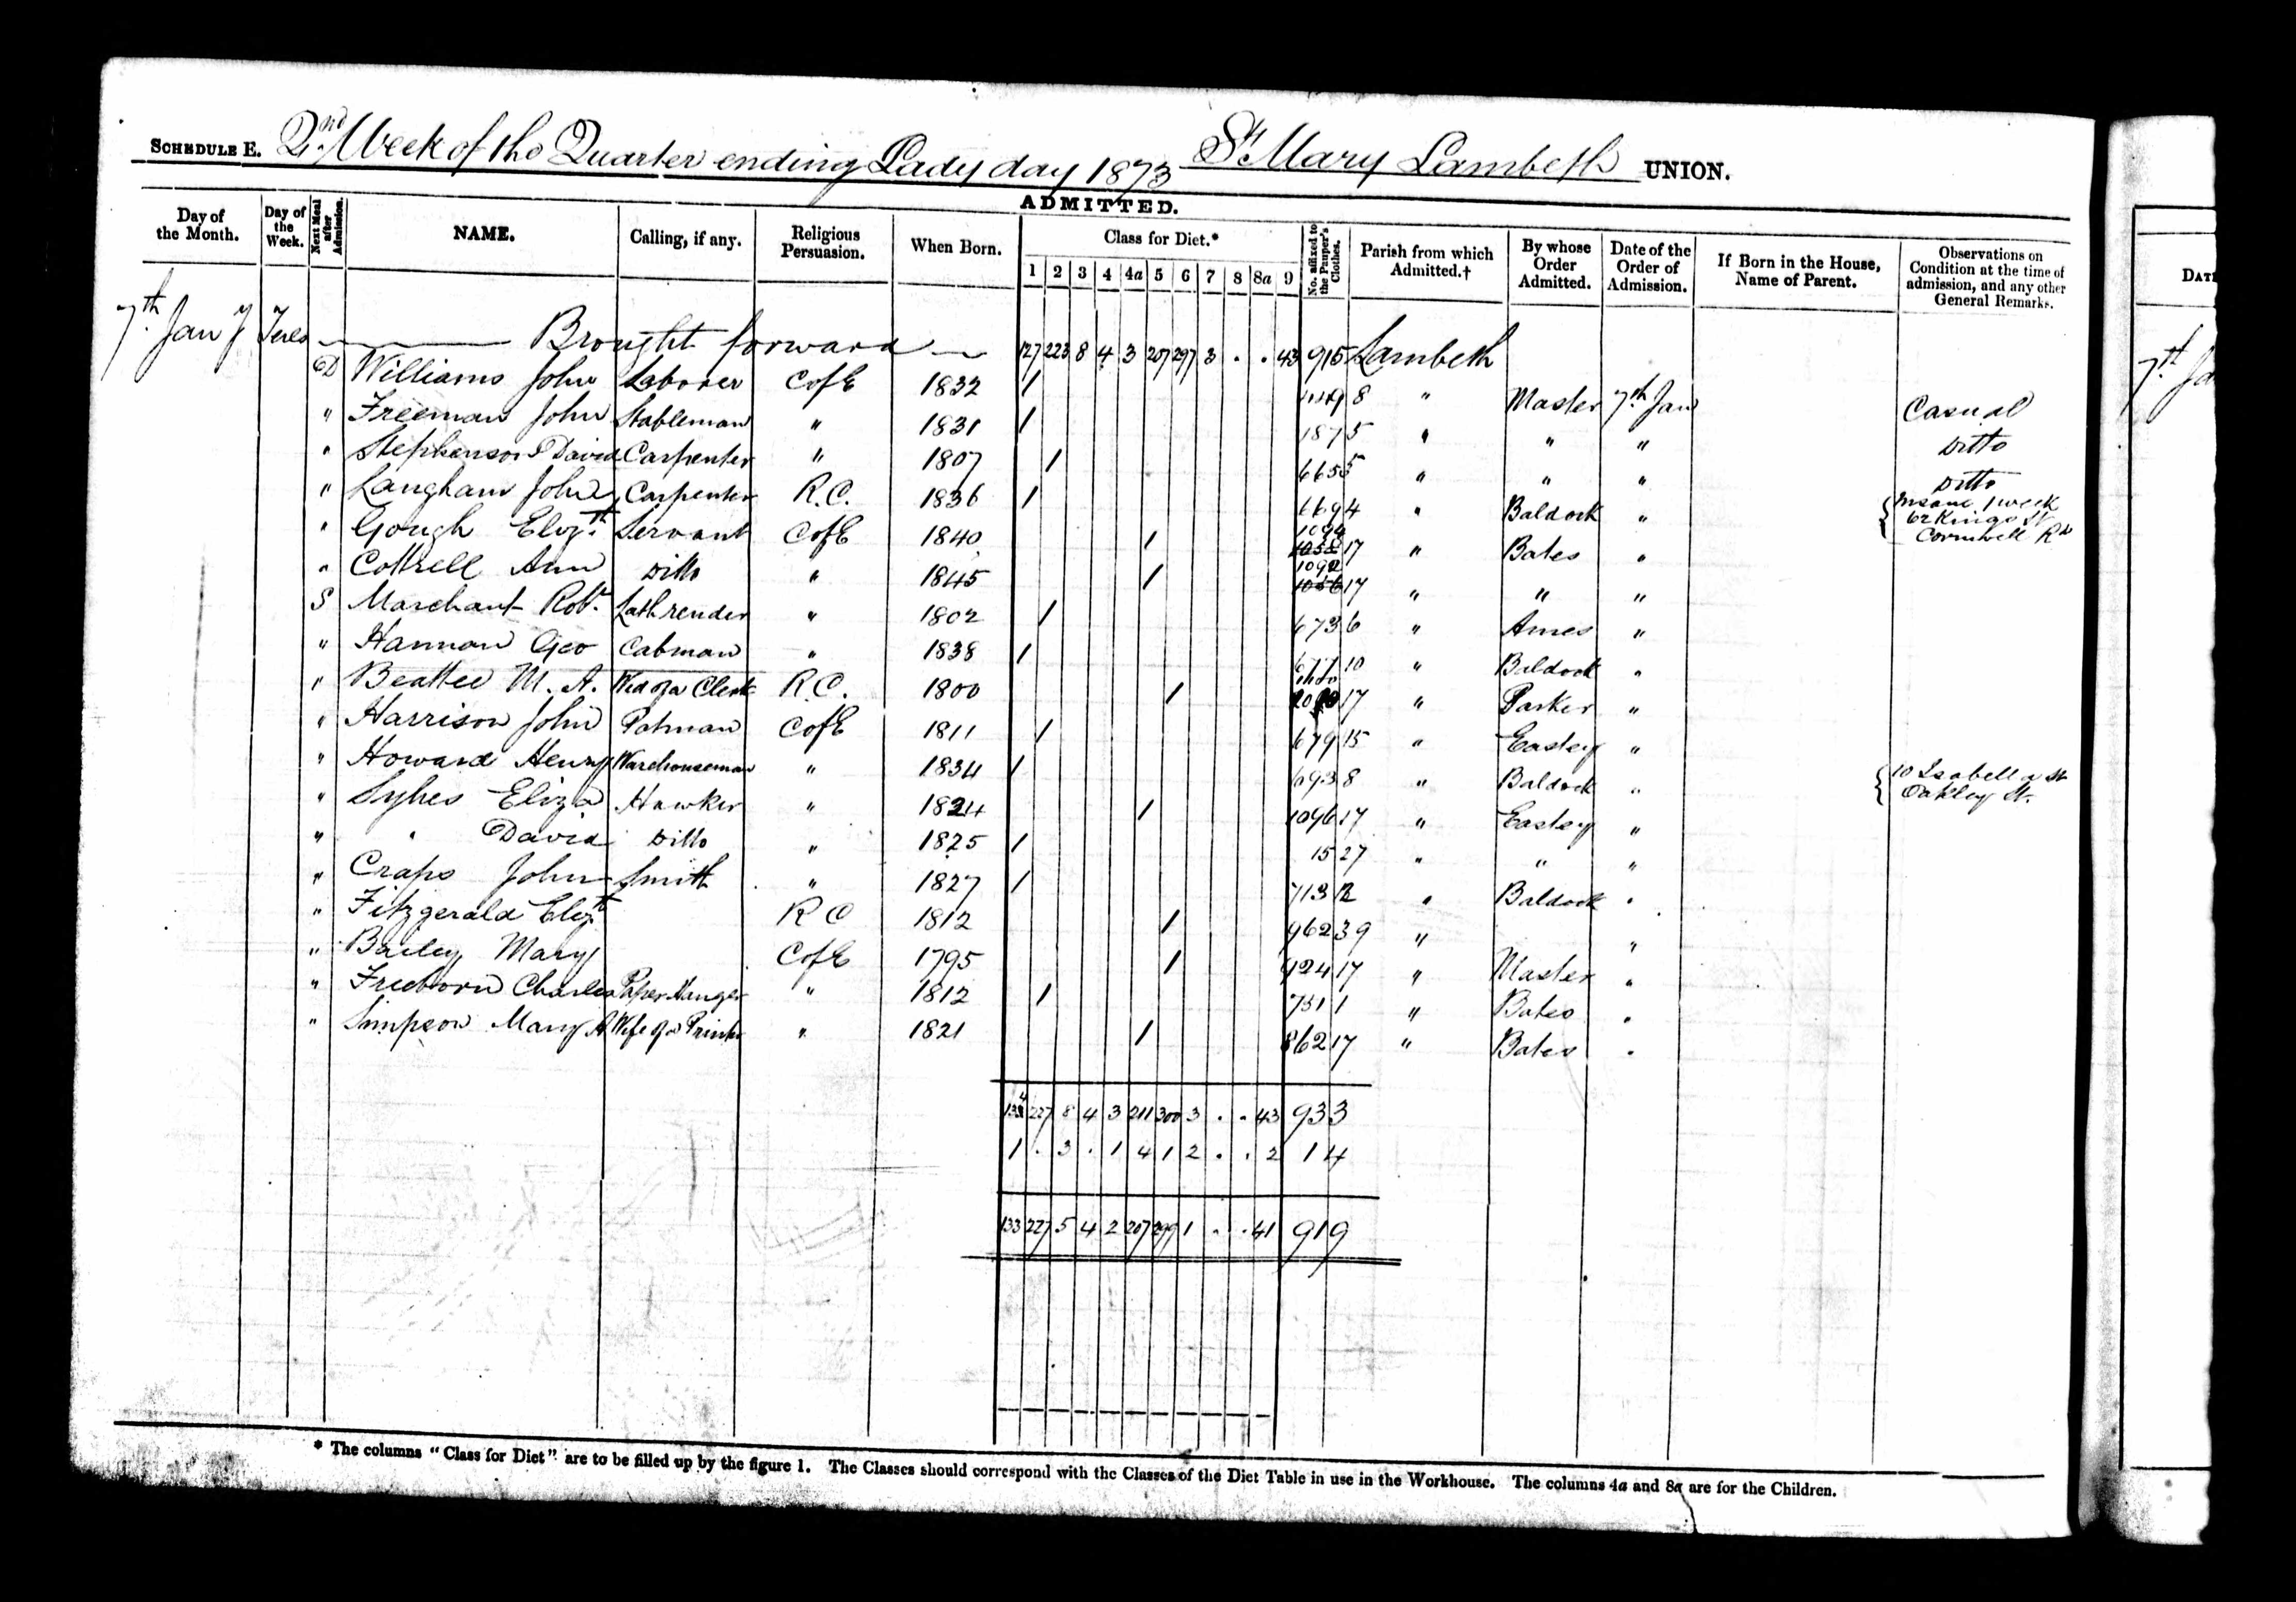 SCHEDULE E. 2nd Week of the Quarter ending Lady day 1873 St Mary Lambeth UNION.
ADMITTED.
Day of the Month. Day of the Week. Next Meal after Admission. NAME. Calling, if any. Religious Persuasion. When Born. Class for Diet.* No. affixed to the Pauper's Clothes. Parish from which Admitted.† By whose Order Admitted. Date of the Order of Admission. If Born in the House, Name of Parent. Observations on Condition at the time of admission, and any other General Remarks.
1 2 3 4 4a 5 6 7 8 8a 9
7th Jany Tues Brought forward 127 223 8 4 3 207 297 3 . . 43 915 Lambeth
D Williams John Laborer C of E 1832 1 8 " Master 7th Jan Casual
" Freeman John Stableman " 1831 1 187 5 " " " Ditto
" Stephenson David Carpenter " 1807 1 665 5 " " " Ditto
" Langham John Carpenter R.C. 1836 1 669 4 " Baldock " { Insane 1 week 62 Kings St Cornwell Rd
" Gough Elizth Servant C of E 1840 1 1094 17 " Bates "
" Cottrell Ann Ditto " 1845 1 1092 1056 17 " " "
S Marchant Robt Lath render " 1802 1 673 6 " Ames "
" Hannan Geo Cabman " 1838 1 677 10 " Baldock "
" Beattee M. A. Wid of a Clerk R.C. 1800 1 17 " Parker "
" Harrison John Potman C of E 1811 1 679 15 " Easley "
" Howard Henry Warehouseman " 1834 1 693 8 " Baldock " { 10 Isabella St Oakley St.
" Sykes Eliza Hawker " 1824 1 1096 17 " Easley "
" " David Ditto " 1825 1 15 27 " " "
" Craps John Smith " 1827 1 713 12 " Baldock "
" Fitzgerald Elizth R C 1812 1 962 39 " "
" Bailey Mary C of E 1795 1 924 17 " Master "
" Freeborn Charles Paper Hanger " 1812 1 731 1 " Bates "
" Simpson Mary A Wife of a Printer " 1821 1 862 17 " Bates "
134 227 8 4 3 211 300 3 . . 43 933
1 . 3 . 1 4 1 2 . . 2 14
133 227 5 4 2 207 299 1 . . 41 919
* The columns "Class for Diet" are to be filled up by the figure 1. The Classes should correspond with the Classes of the Diet Table in use in the Workhouse. The columns 4a and 8a are for the Children.
DATE
7th Ja